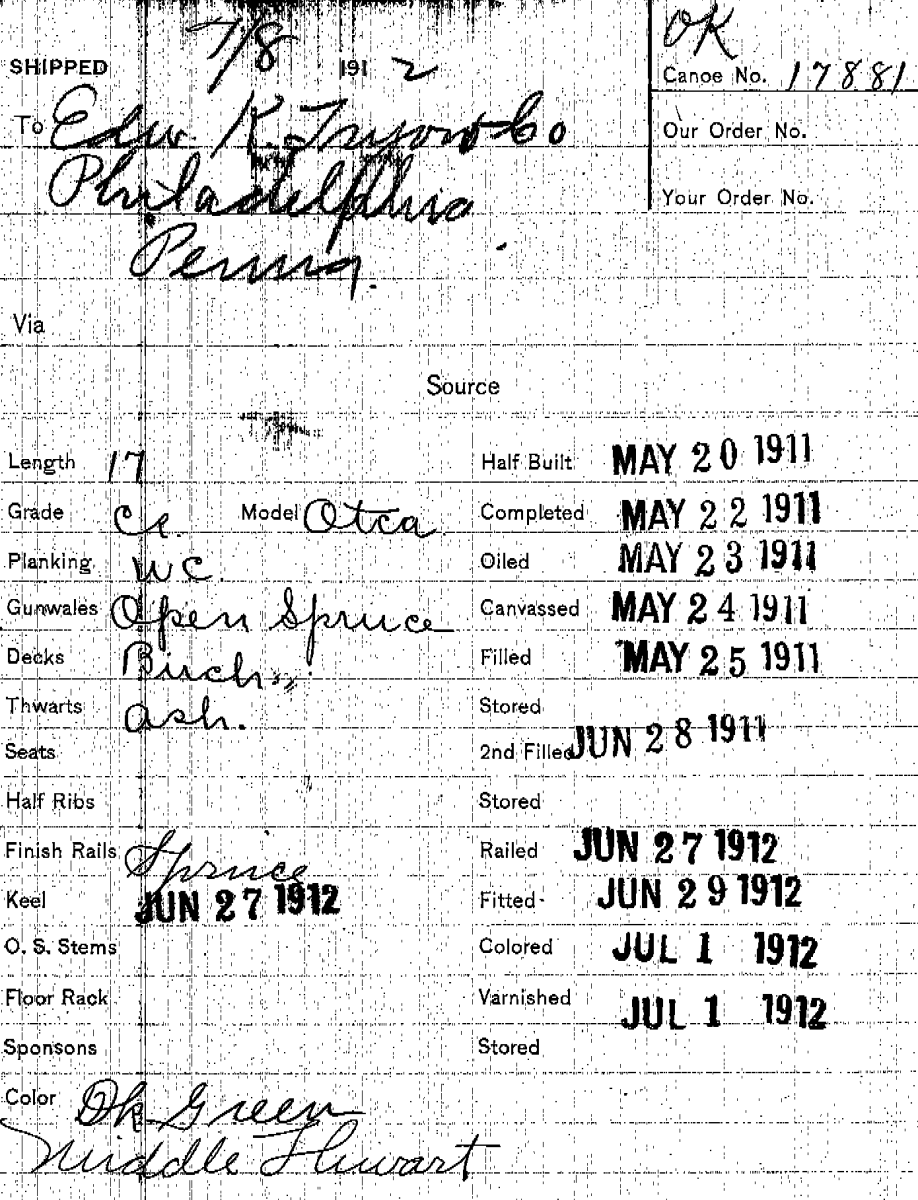 OK
SHIPPED 7/8 1912
Canoe No. 17881
To Edw. K. Tryon Co
Our Order No.
Philadelphia
Your Order No.
Penna.
Via
Source
Length 17 Half Built MAY 20 1911
Grade CA Model Otca Completed MAY 22 1911
Planking WC Oiled MAY 23 1911
Gunwales Open Spruce Canvassed MAY 24 1911
Decks Birch Filled MAY 25 1911
Thwarts Ash. Stored
Seats 2nd Filled JUN 28 1911
Half Ribs Stored
Finish Rails Spruce Railed JUN 27 1912
Keel JUN 27 1912 Fitted JUN 29 1912
O. S. Stems Colored JUL 1 1912
Floor Rack Varnished JUL 1 1912
Sponsons Stored
Color Dk Green
Middle Thwart